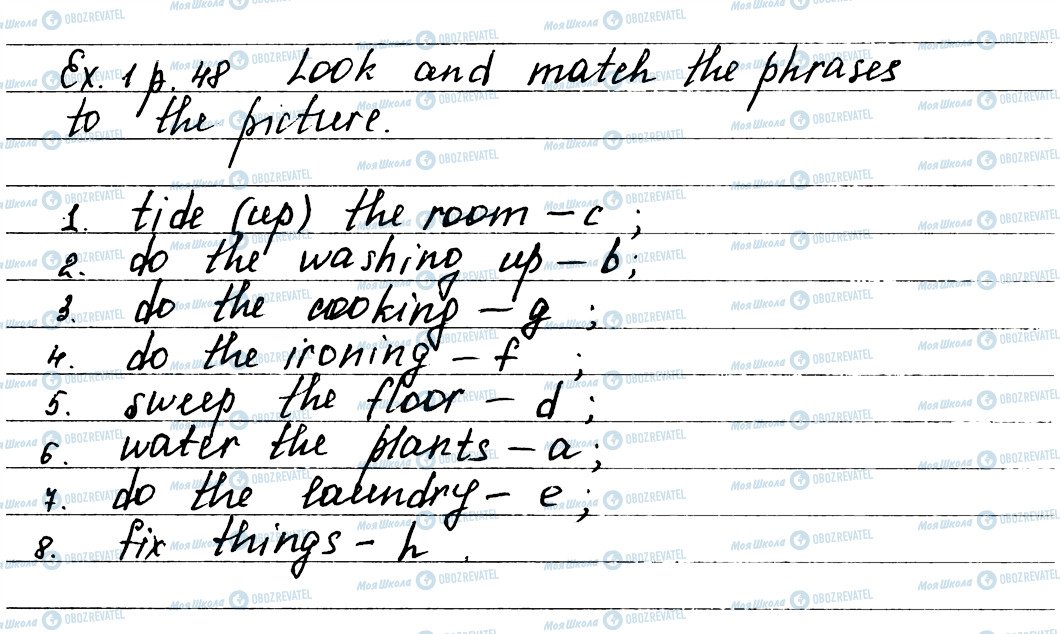 Ex. 1 p. 48 Look and match the phrases
to the picture.
1. tide (up) the room – c ;
2. do the washing up – b;
3. do the cooking – g ;
4. do the ironing – f ;
5. sweep the floor – d ;
6. water the plants – a;
7. do the laundry – e ;
8. fix things – h .
Моя Школа OBOZREVATEL